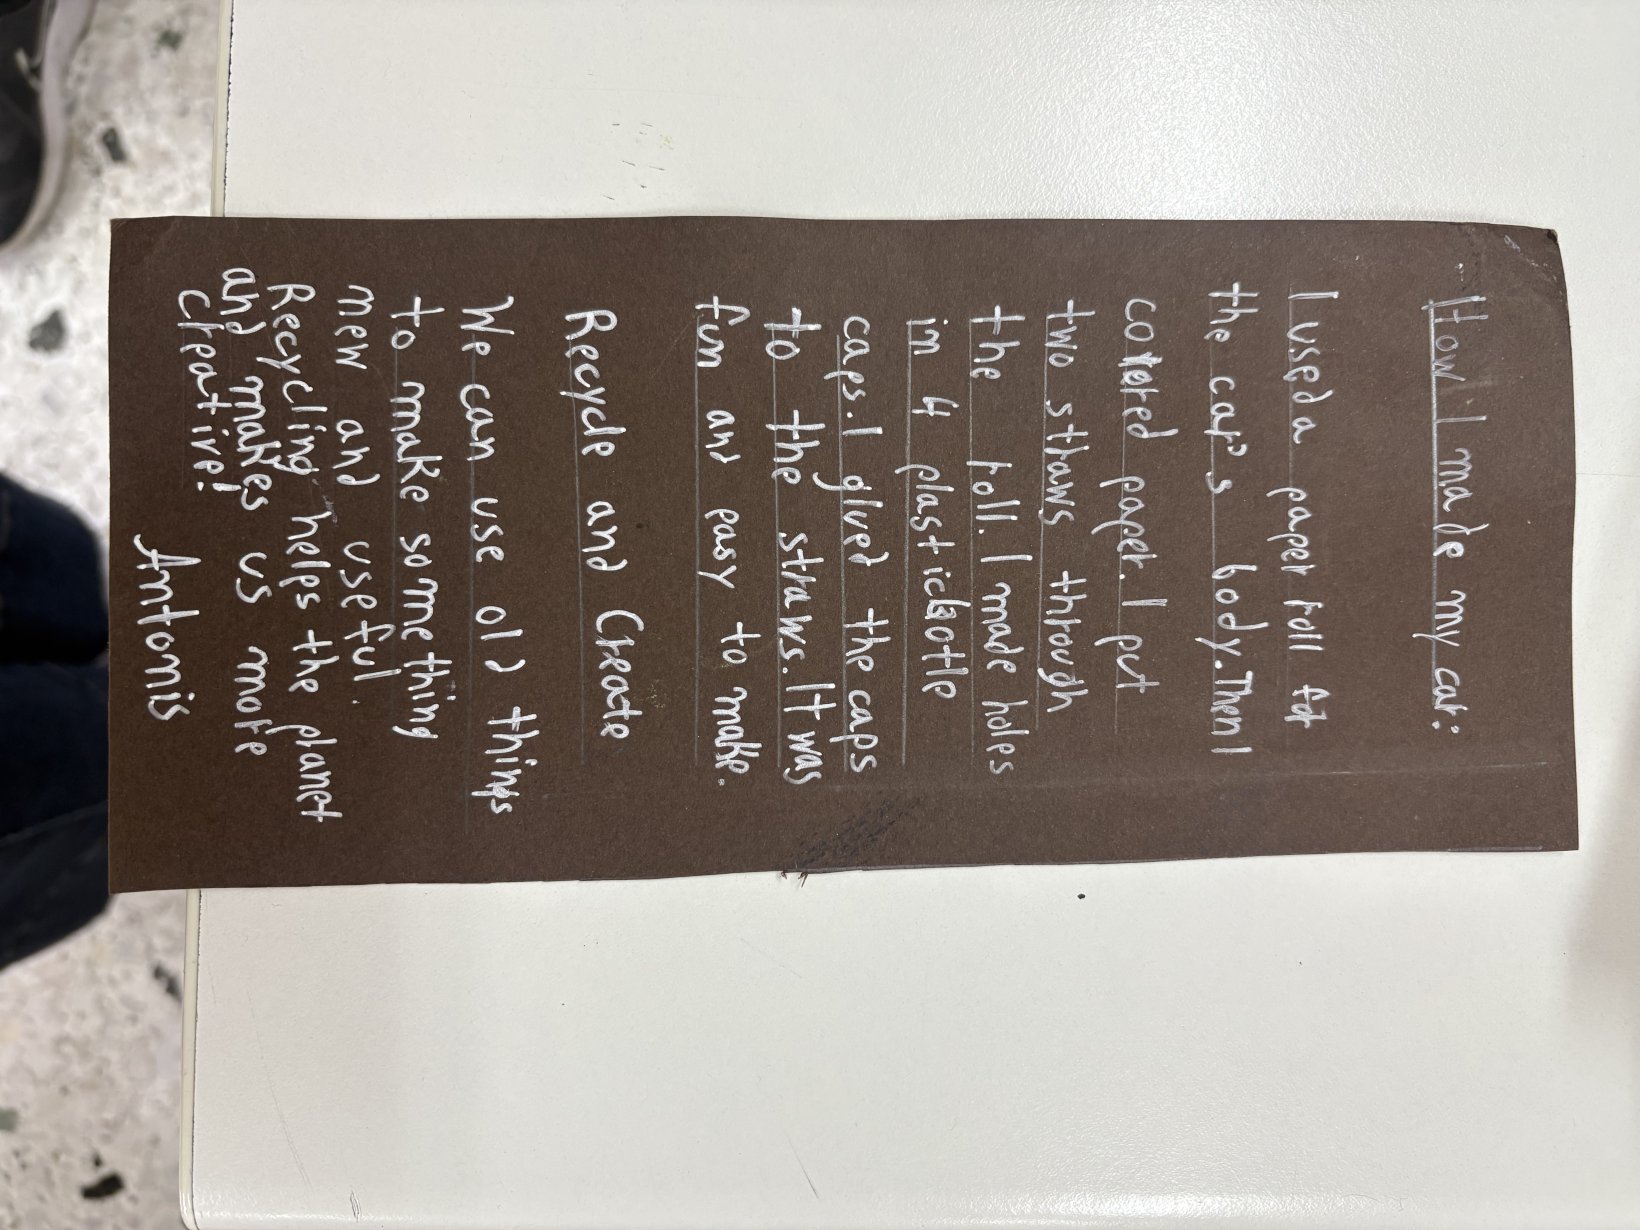 How I made my car:
I used a paper roll for
the car's body. Then I
covered paper. I put
two straws through
the roll. I made holes
in 4 plastic bottle
caps. I glued the caps
to the straws. It was
fun and easy to make.
Recycle and Create
We can use old things
to make something
new and useful.
Recycling helps the planet
and makes us more
creative!
Antonis